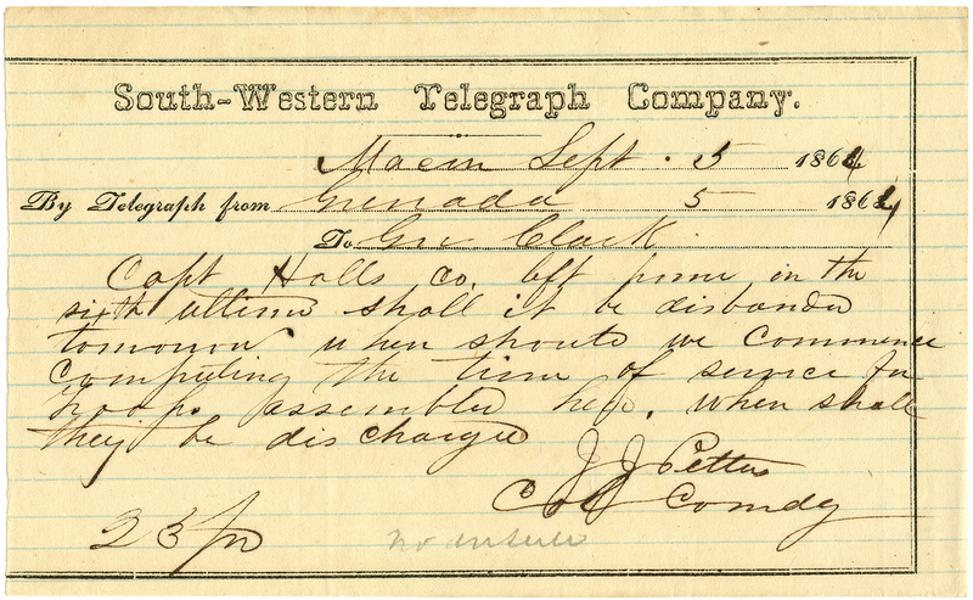 South-Western Telegraph Company.
Macon Sept. 5 1864
By Telegraph from Grenada 5 1864
To Gov Clark
Capt Halls co. left home in the
sixth ultimo shall it be disbanded
tomorrow when should we commence
computing the time of service for
troops assembled here. when shall
they be discharged
J J Pettus
Col Comdg
23 pd
no answer